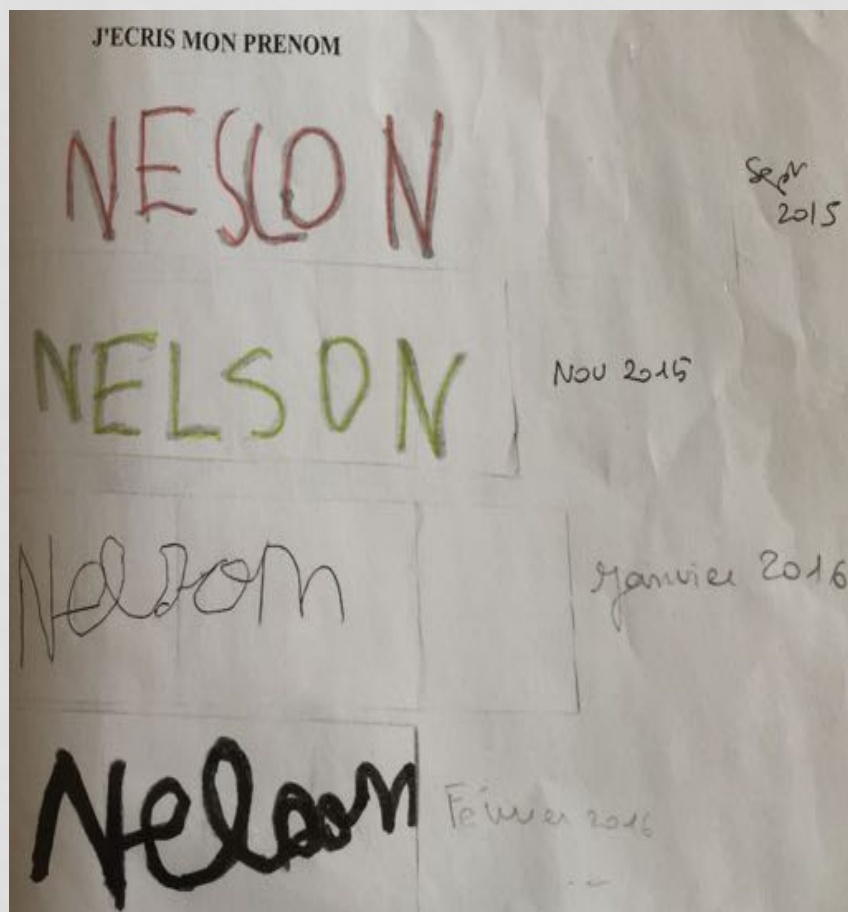 J'ECRIS MON PRENOM
NESLON
Sept
2015
NELSON
NOV 2015
Nelson
Janvier 2016
Nelson
Février 2016